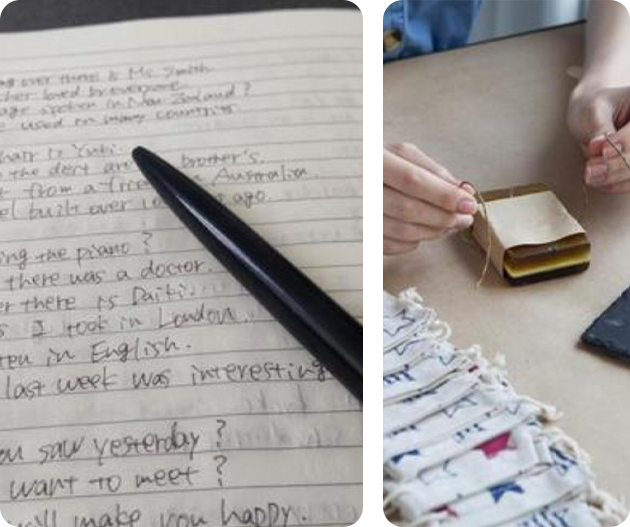 over there is Mr. Smith
loved by everyone.
spoken in New Zealand?
used in many countries
hair is Yuki.
the desk are brother's.
from a friend in Australia.
built over 10 ago.
ing the piano?
there was a doctor.
there is Daiki.
I took in London.
ten in English.
last week was interesting
saw yesterday?
want to meet?
will make you happy.